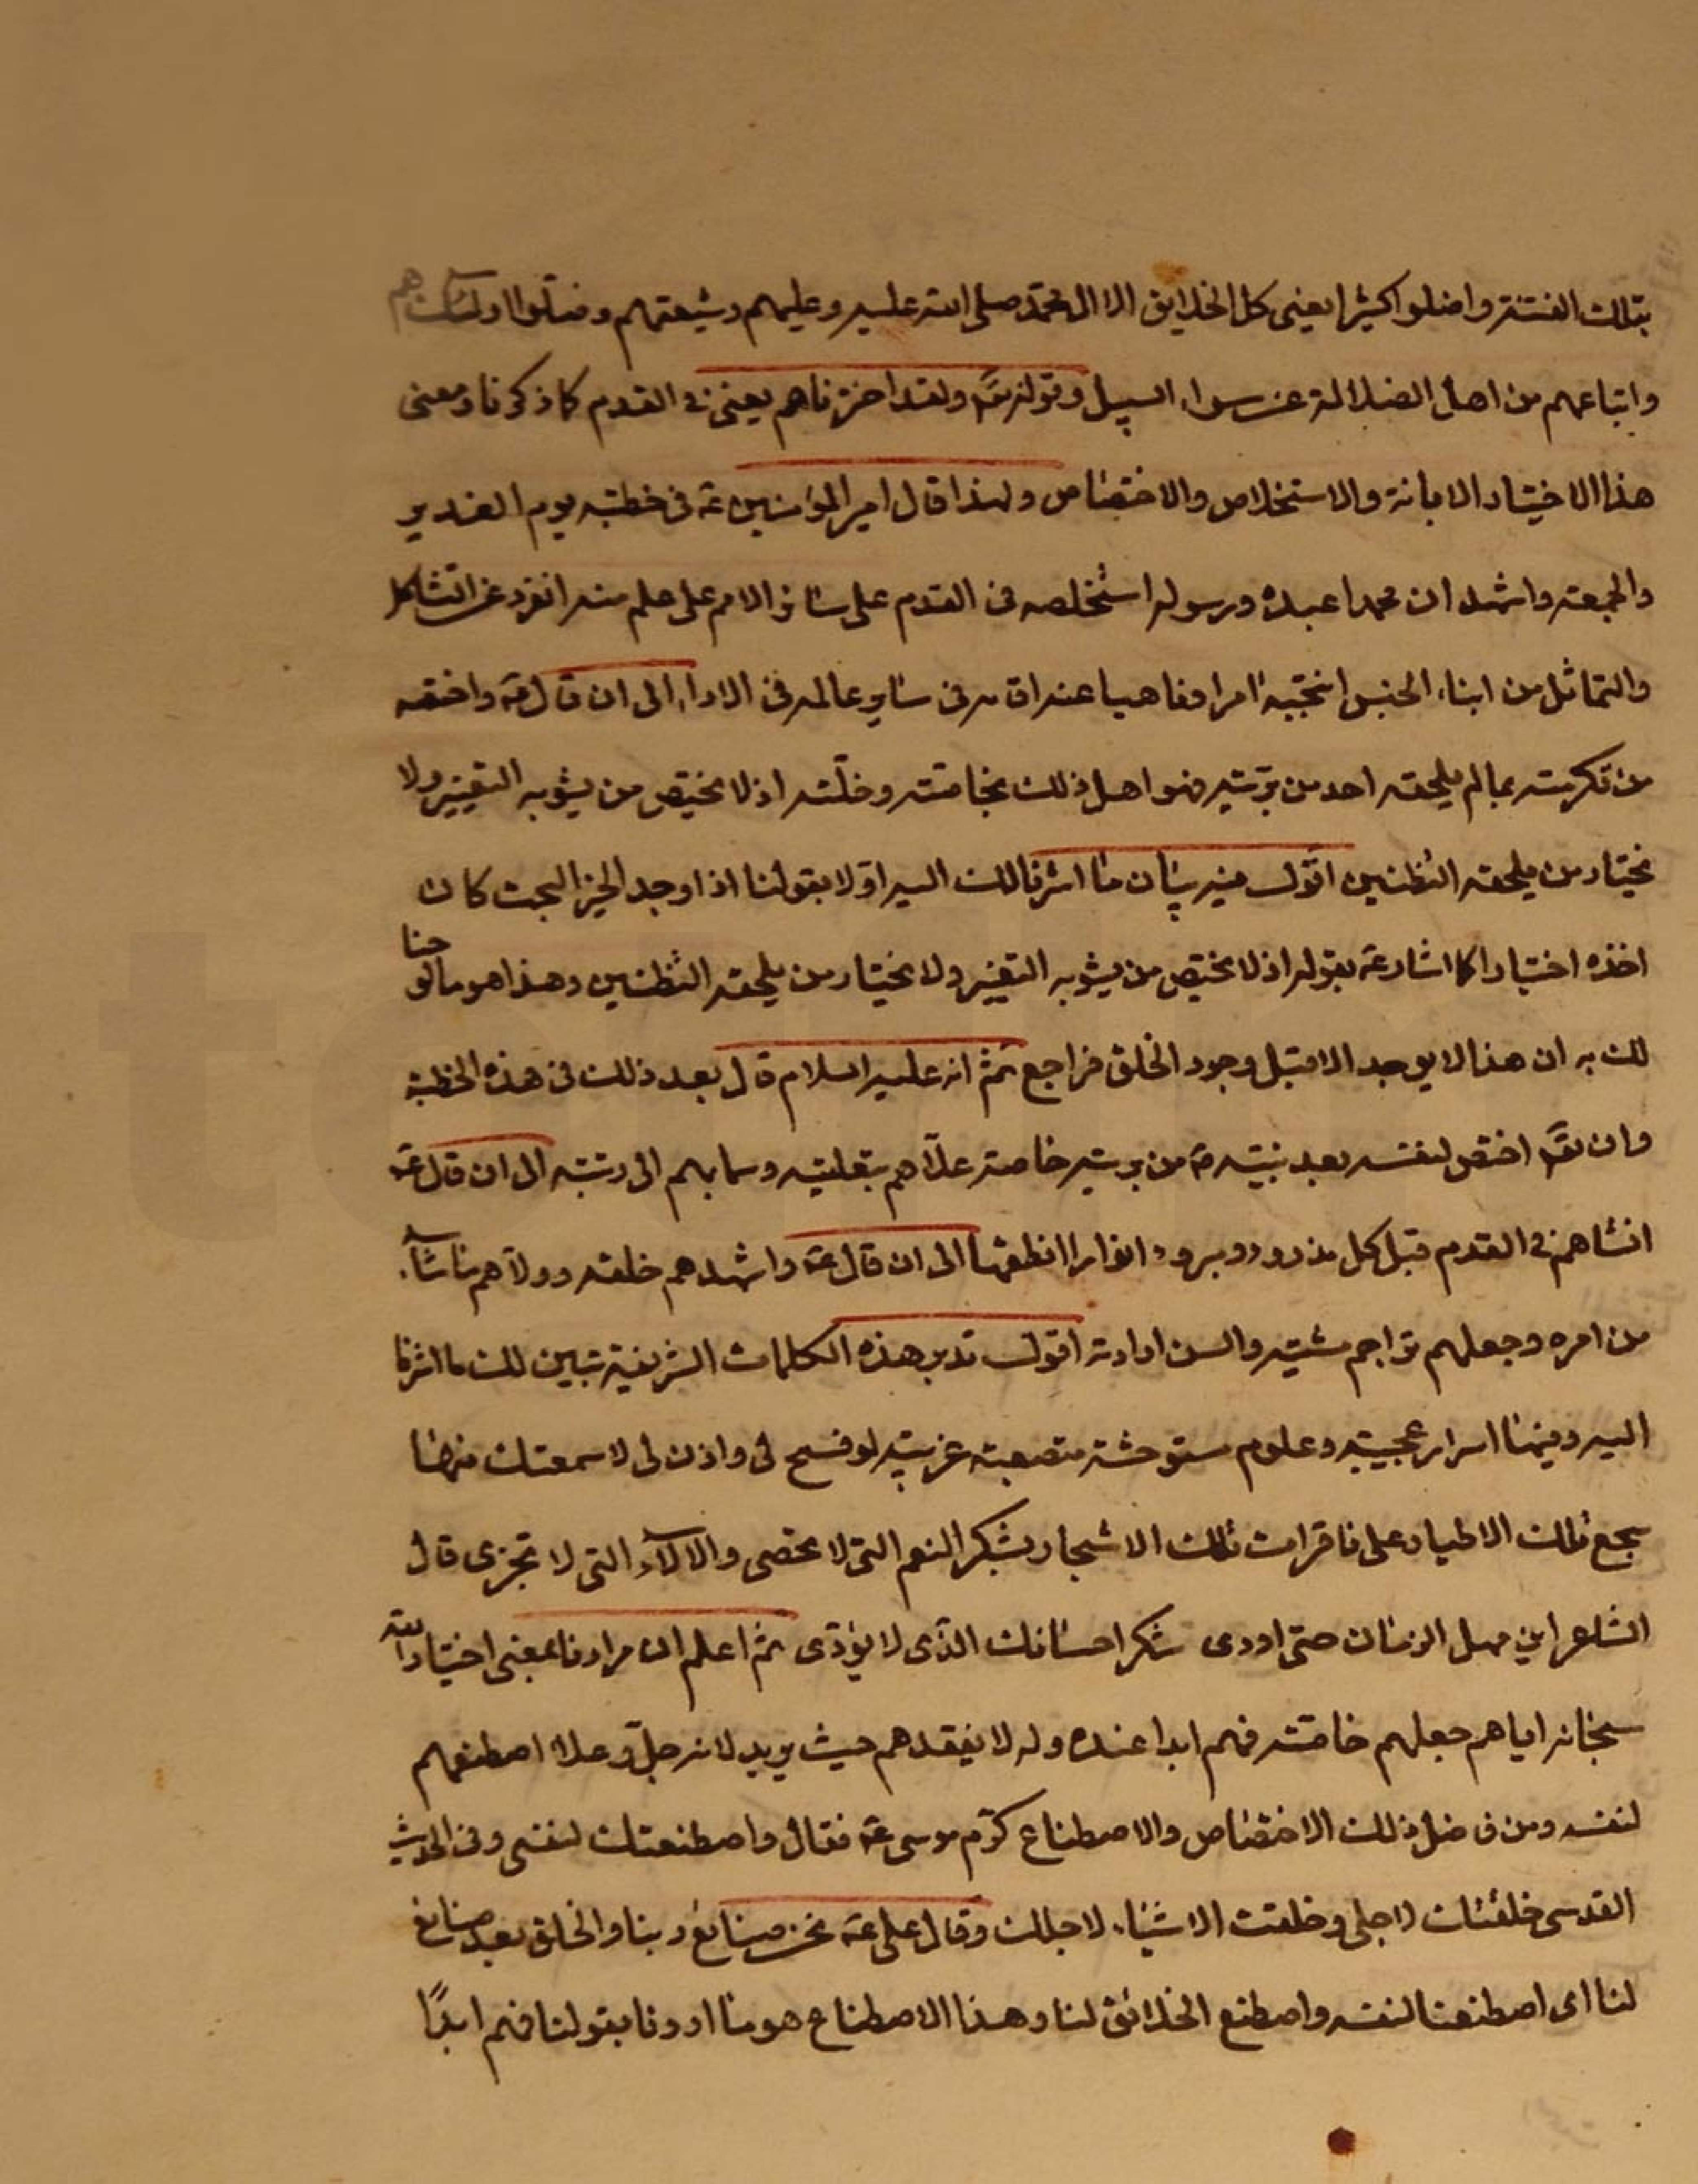 بتلك الفتنة واضلوا كثيرا يعنى كل الخلايق الا ال محمد صلى الله عليه وعليهم وشيعتهم وضلوا اولئك هم
واتباعهم من اهل الضلالة عن سواء السبيل وقوله تعَ ولقد اخترناهم يعنى في القدم كما ذكرنا ومعنى
هذا الاختيار الابانة والاستخلاص والاختصاص ولهذا قال امير المؤمنين عَ فى خطبته يوم الغدير
والجمعة واشهد ان محمدا عبده ورسوله استخلصه فى القدم على سائر الامم على علم منه انفرد عن التشاكل
والتماثل من ابناء الجنس انتجبه امرا وناهيا عنه اقامه فى سائر عالمه فى الاداء الى ان قال عَ واختصه
من تكرمته بما لم يلحقه احد من بريته فهو اهل ذلك بخاصته وخلته اذ لا يختص من يشوبه التغيير ولا
يختار من يلحقه التظنين اقول فيه بيان ما اشرنا لك اليه اولا بقولنا اذا وجد الخير البحت كان
اخذه اختيارا كما اشار عَ بقوله اذ لا يختص من يشوبه التغيير ولا يختار من يلحقه التظنين وهذا هو ما لوحنا
لك به ان هذا لا يوجد الا قبل وجود الخلق فراجع ثم انه عليه السلام قال بعد ذلك فى هذه الخطبة
وان تعَ اختص لنفسه بعد نبيه صَ من بريته خاصة علاهم بتعليته وسما بهم الى رتبته الى ان قال عَ
انشاهم في القدم قبل كل مذروء ومبروء انوارا انطقها الى ان قال عَ واشهدهم خلقه وولاهم ما شاء
من امره وجعلهم تراجم مشيته والسن ارادته اقول تدبر هذه الكلمات الشريفة تبين لك ما اشرنا
اليه وفيها اسرار عجيبة وعلوم مستوحشة متصعبة غريبة لو فسح لى واذن لى لاسمعتك منها
سجع تلك الاطيار على ناقرات تلك الاشجار بشكر النعم التى لا تحصى والالاء التى لا تجزى قال
الشاعر اين مهل الزمان حتى اودى شكر احسانك الذى لا يؤدى ثم اعلم ان مرادنا بمعنى اختيار الله
سبحانه اياهم جعلهم خاصته فهم ابدا عنده وله لا يفقدهم حيث يريد لانه جل وعلا اصطنعهم
لنفسه ومن فاضل ذلك الاختصاص والاصطناع كرم موسى عَ فقال واصطنعتك لنفسى وفى الحديث
القدسى خلقتك لاجلى وخلقت الاشياء لاجلك وقال على عَ نحن صنايع ربنا والخلق بعد صنايع
لنا اى اصطنعنا لنفسه واصطنع الخلائق لنا وهذا الاصطناع هو ما اردنا بقولنا فهم ابدًا